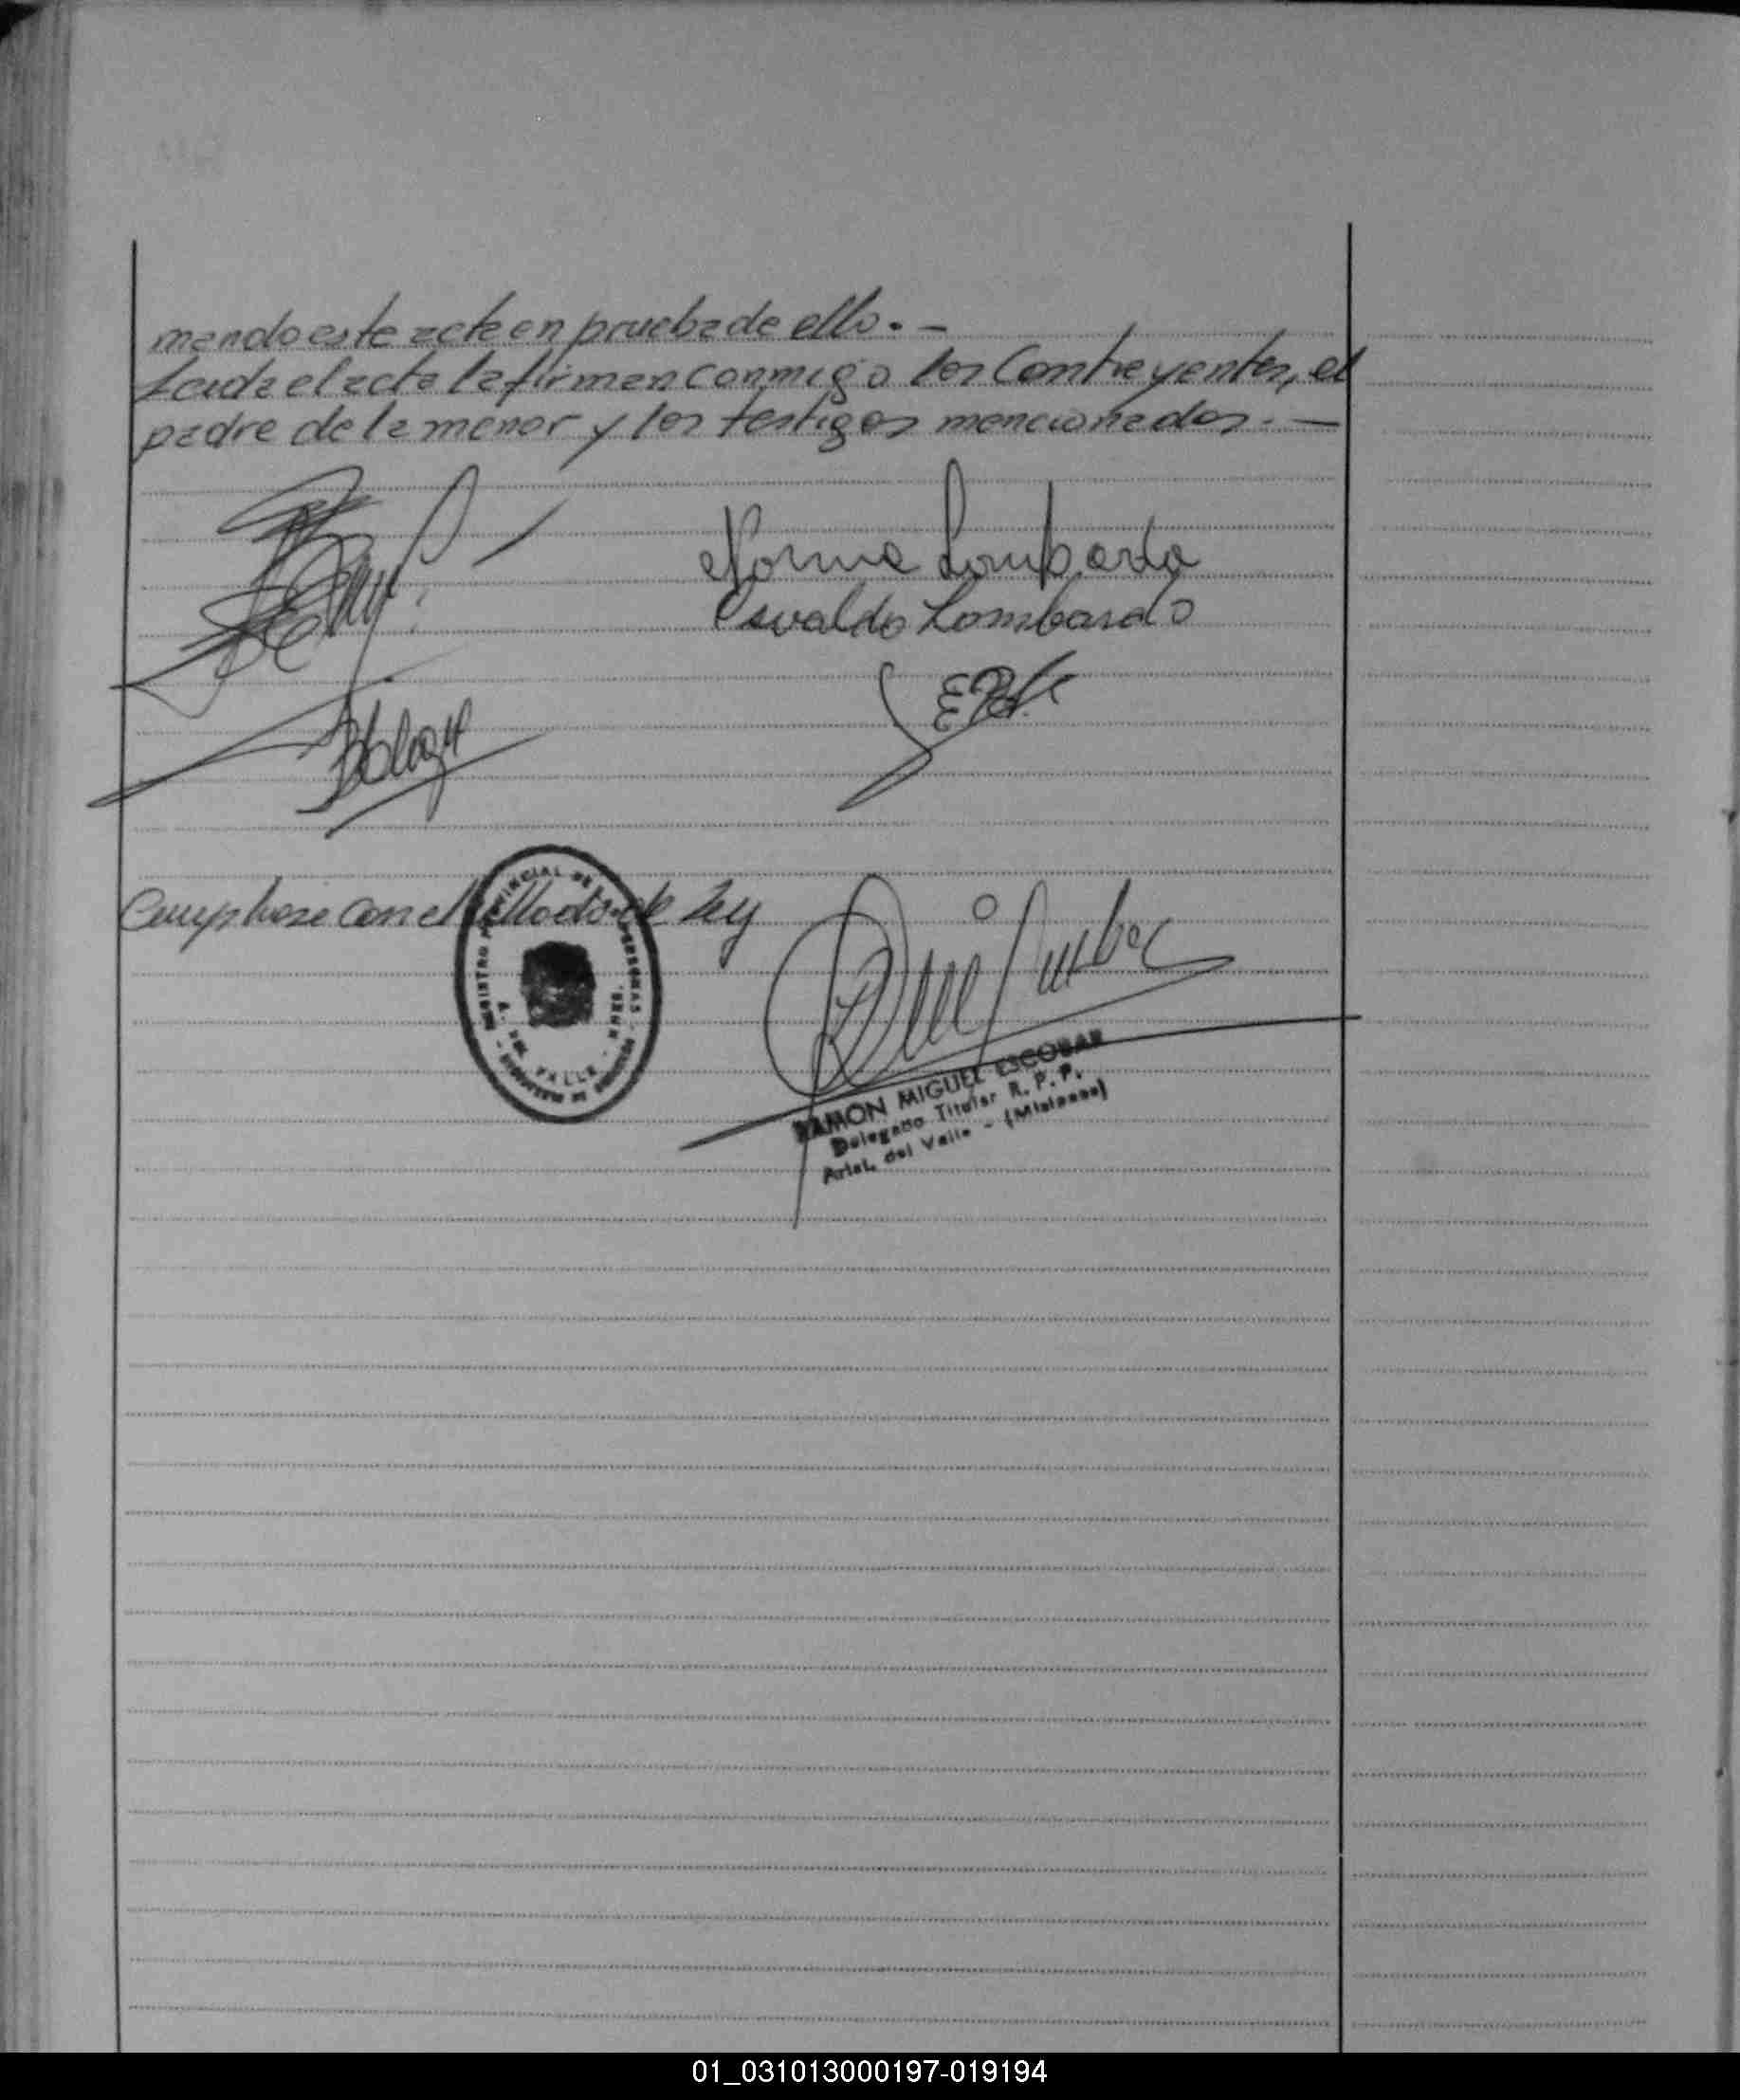 mando este acta en prueba de ello. —
Leida el acta la firman conmigo los Contrayentes, el
padre de la menor y los testigos mencionados. —
Norma Lombardo
Osvaldo Lombardo
Cumplvase con el de Ley
REGISTRO PROVINCIAL DE LAS PERSONAS
A. DEL VALLE
RAMON MIGUEL ESCOBAR
Delegado Titular R. P. P.
Arist. del Valle - (Misiones)
01_031013000197-019194